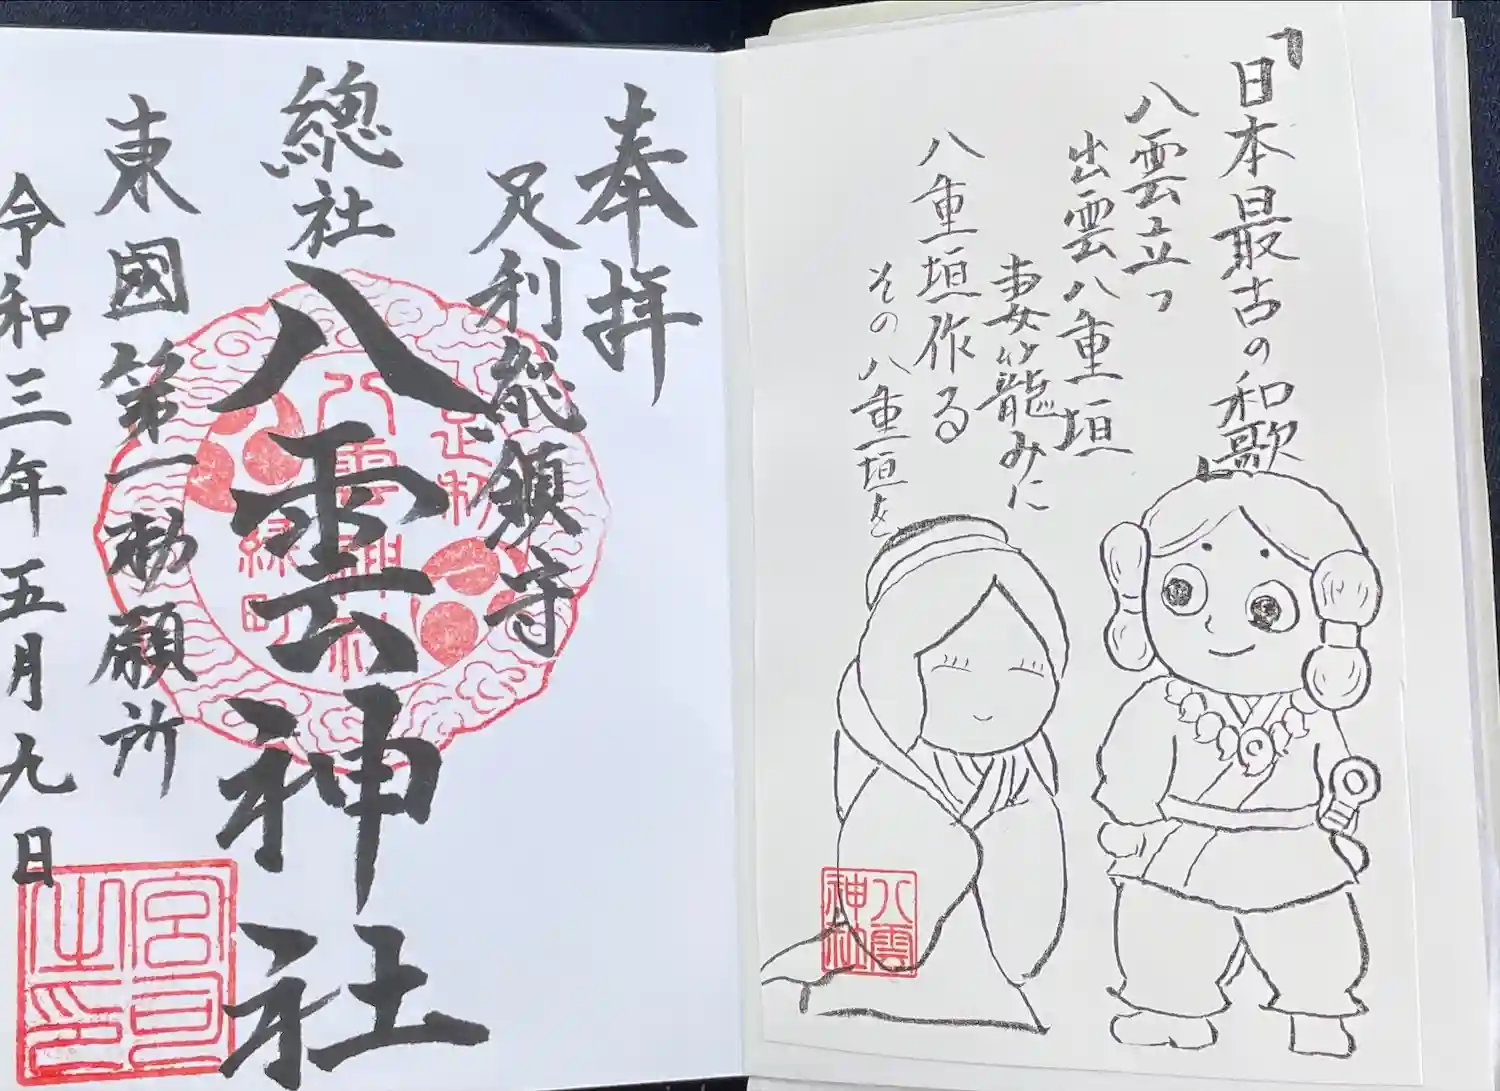 「日本最古の和歌」
八雲立つ
出雲八重垣
妻籠みに
八重垣作る
その八重垣を
八雲神社
奉拝
足利総領守
總社
八雲神社
東國第一勅願所
令和三年五月九日
足利
八雲神社
緑町
宮司之印